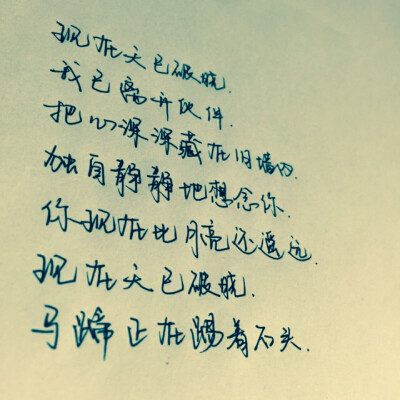 现在天已破晓.
我已离开伙伴.
把心深深藏在旧墙内.
独自静静地想念你.
你现在比月亮还遥远.
现在天已破晓.
马蹄正在踢着石头.